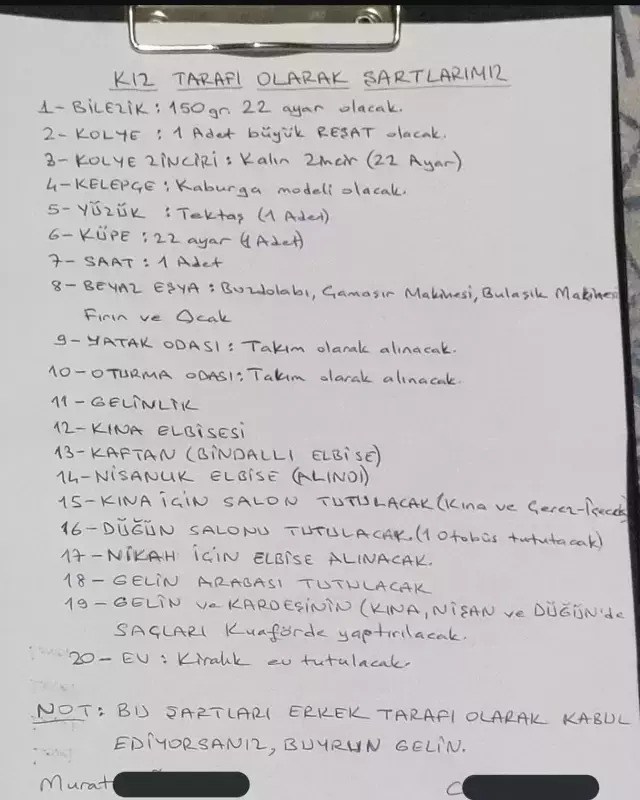 KIZ TARAFI OLARAK ŞARTLARIMIZ
1- BİLEZİK : 150gr 22 ayar olacak.
2- KOLYE : 1 Adet büyük REŞAT olacak.
3- KOLYE ZİNCİRİ : Kalın Zincir (22 Ayar)
4- KELEPÇE : Kaburga modeli olacak.
5- YÜZÜK : Tektaş (1 Adet)
6- KÜPE : 22 ayar (1 Adet)
7- SAAT : 1 Adet
8- BEYAZ EŞYA : Buzdolabı, Çamaşır Makinesi, Bulaşık Makinesi
Fırın ve Ocak
9- YATAK ODASI : Takım olarak alınacak.
10- OTURMA ODASI : Takım olarak alınacak.
11- GELİNLİK
12- KINA ELBİSESİ
13- KAFTAN (BİNDALLI ELBİSE)
14- NİŞANLIK ELBİSE (ALINDI)
15- KINA İÇİN SALON TUTULACAK (Kına ve Çerez-İçecek)
16- DÜĞÜN SALONU TUTULACAK. (1 Otobüs tutulacak)
17- NİKAH İÇİN ELBİSE ALINACAK.
18- GELİN ARABASI TUTULACAK
19- GELİN ve KARDEŞİNİN (KINA, NİŞAN ve DÜĞÜN'de
SAÇLARI Kuaförde yaptırılacak.
20- EV : Kiralık ev tutulacak.
NOT: BU ŞARTLARI ERKEK TARAFI OLARAK KABUL
EDİYORSANIZ, BUYRUN GELİN.
Murat